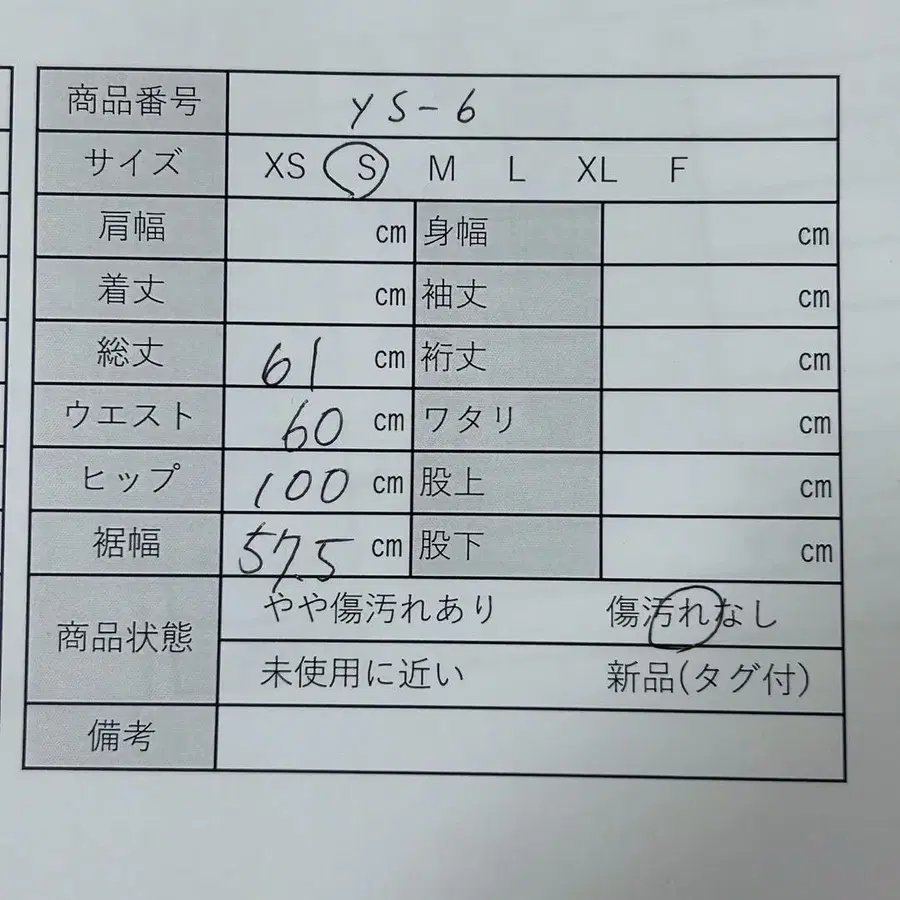 商品番号 YS-6
サイズ XS S M L XL F
肩幅 cm 身幅 cm
着丈 cm 袖丈 cm
総丈 61 cm 裄丈 cm
ウエスト 60 cm ワタリ cm
ヒップ 100 cm 股上 cm
裾幅 57.5 cm 股下 cm
商品状態 やや傷汚れあり 傷汚れなし
未使用に近い 新品(タグ付)
備考